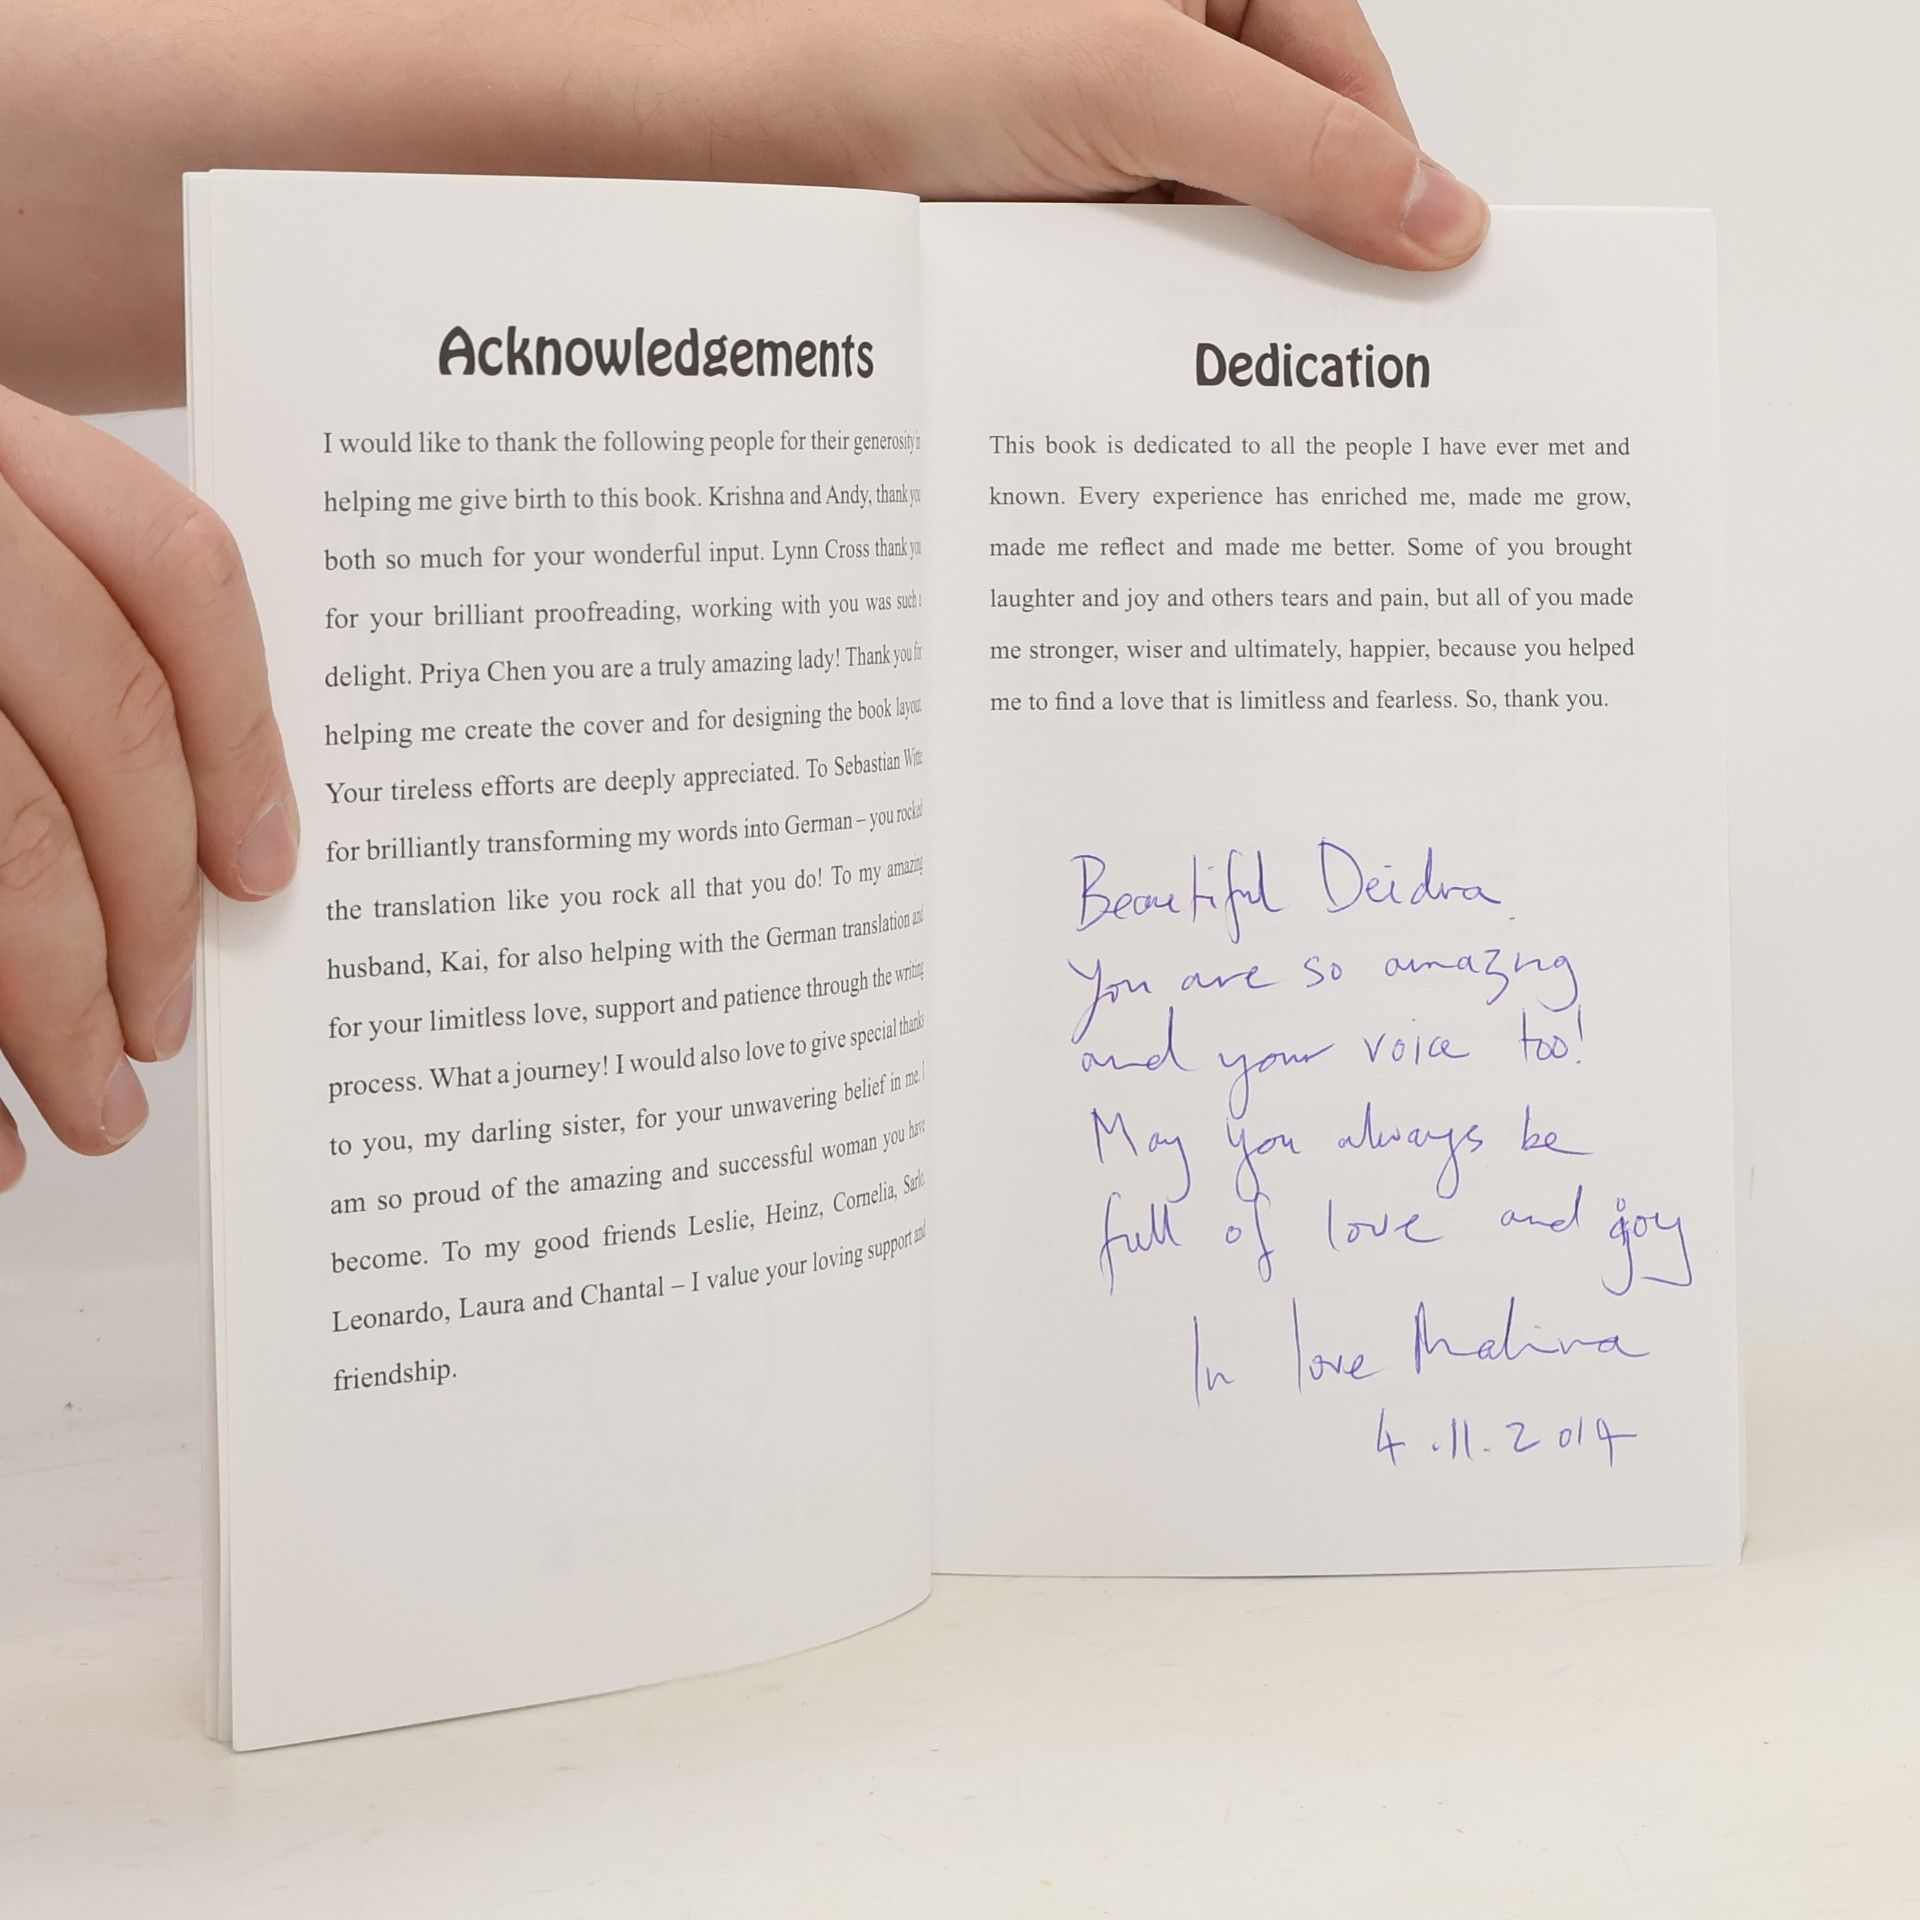 Acknowledgements
I would like to thank the following people for their generosity in
helping me give birth to this book. Krishna and Andy, thank you
both so much for your wonderful input. Lynn Cross thank you
for your brilliant proofreading, working with you was such a
delight. Priya Chen you are a truly amazing lady! Thank you for
helping me create the cover and for designing the book layout.
Your tireless efforts are deeply appreciated. To Sebastian
for brilliantly transforming my words into German – you rocked
the translation like you rock all that you do! To my amazing
husband, Kai, for also helping with the German translation and
for your limitless love, support and patience through the writing
process. What a journey! I would also love to give special thanks
to you, my darling sister, for your unwavering belief in me. I
am so proud of the amazing and successful woman you have
become. To my good friends Leslie, Heinz, Cornelia,
Leonardo, Laura and Chantal – I value your loving support and
friendship.
Dedication
This book is dedicated to all the people I have ever met and
known. Every experience has enriched me, made me grow,
made me reflect and made me better. Some of you brought
laughter and joy and others tears and pain, but all of you made
me stronger, wiser and ultimately, happier, because you helped
me to find a love that is limitless and fearless. So, thank you.
Beautiful Deidra
You are so amazing
and your voice too!
May you always be
full of love and joy
In love Malina
4.11.2014